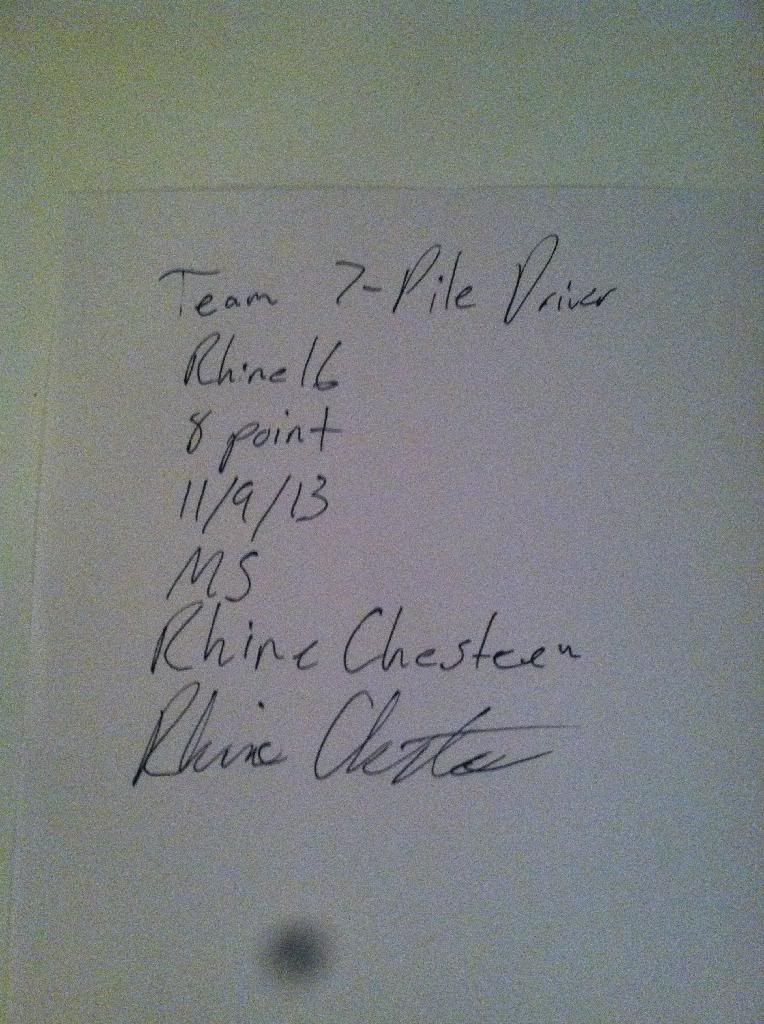 Team 7-Pile Driver
Rhine16
8 point
11/9/13
MS
Rhine Chesteen
Rhine Chesteen